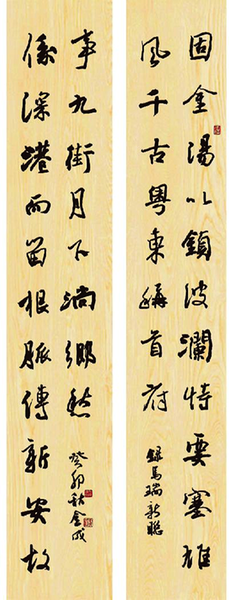 固金湯以鎮波瀾恃要塞雄
風千古粵東稱首府
錄馬瑞新聯
依深港而留根脈傳新安故
事九街月下淌鄉愁
癸卯秋金成